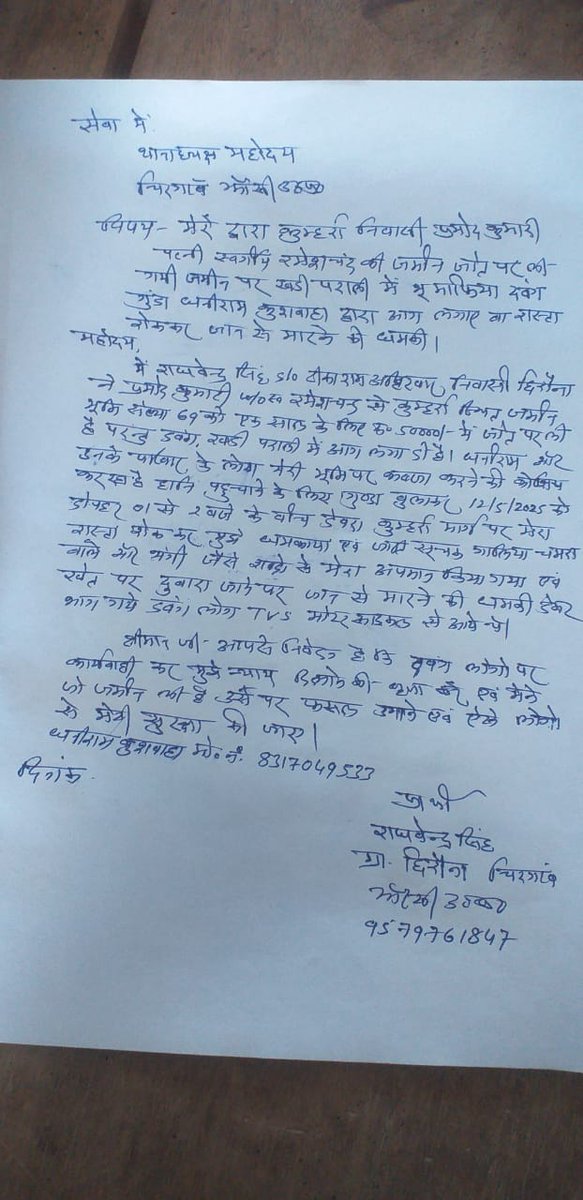 सेवा में
थानाध्यक्ष महोदय
चिरगाँव झाँसी उ०प्र०
विषय- मेरे द्वारा कुम्हर्रा निवासी प्रमोद कुमारी
पत्नी स्वर्गीय रमेशचंद की जमीन जोत पर ली-
गयी जमीन पर खडी पराली में भू माफिया दबंग
गुंडा धनीराम कुशवाहा द्वारा आग लगाए वा रास्ता
रोककर जान से मारने की धमकी।
महोदय,
में राघवेन्द्र सिंह s/o टीकाराम अहिरवार निवासी
ने प्रमोद कुमारी w/o स्व रमेशचन्द्र से कुम्हर्रा स्थित जमीन
भूमि संख्या 69 को एक साल के लिए रू० 50000/- में जोत पर ली
है परन्तु दबंग, खडी पराली में आग लगा दी है। धनीराम और
उनके परिवार के लोग मेरी भूमि पर कबजा करने की कोशिश
कर रहा है हानि पहुचाने के लिए गुण्डा बुलाकर 12/5/2025 को
दोपहर 01 से 2 बजे के बीच डेवढा कुम्हर्रा मार्ग पर मेरा
रास्ता रोक कर मुझे धमकाया एवं जाति सूचक गालिया चमरा
वाले और भंगी जैसे शब्दो से मेरा अपमान किया गया एवं
खेत पर दुबारा जाने पर जान से मारने की धमकी देकर
भाग गये दबंग लोग TVS मोटर साइकल से आये थे।
श्रीमान जी- आपसे निवेदन है कि दबंग लोगो पर
कार्यवाही कर मुझे न्याय दिलाने की कृपा करें एवं मैंने
जो जमीन ली है उस पर फसल उगाने एवं ऐसे लोगो
से मेरी सुरक्षा की जाए।
धनीराम कुशवाहा मो० नं. 8317049533
दिनांक.
प्रार्थी
राघवेन्द्र सिंह
ग्रा. चिरगांव
झाँसी उ०प्र०
9579761847